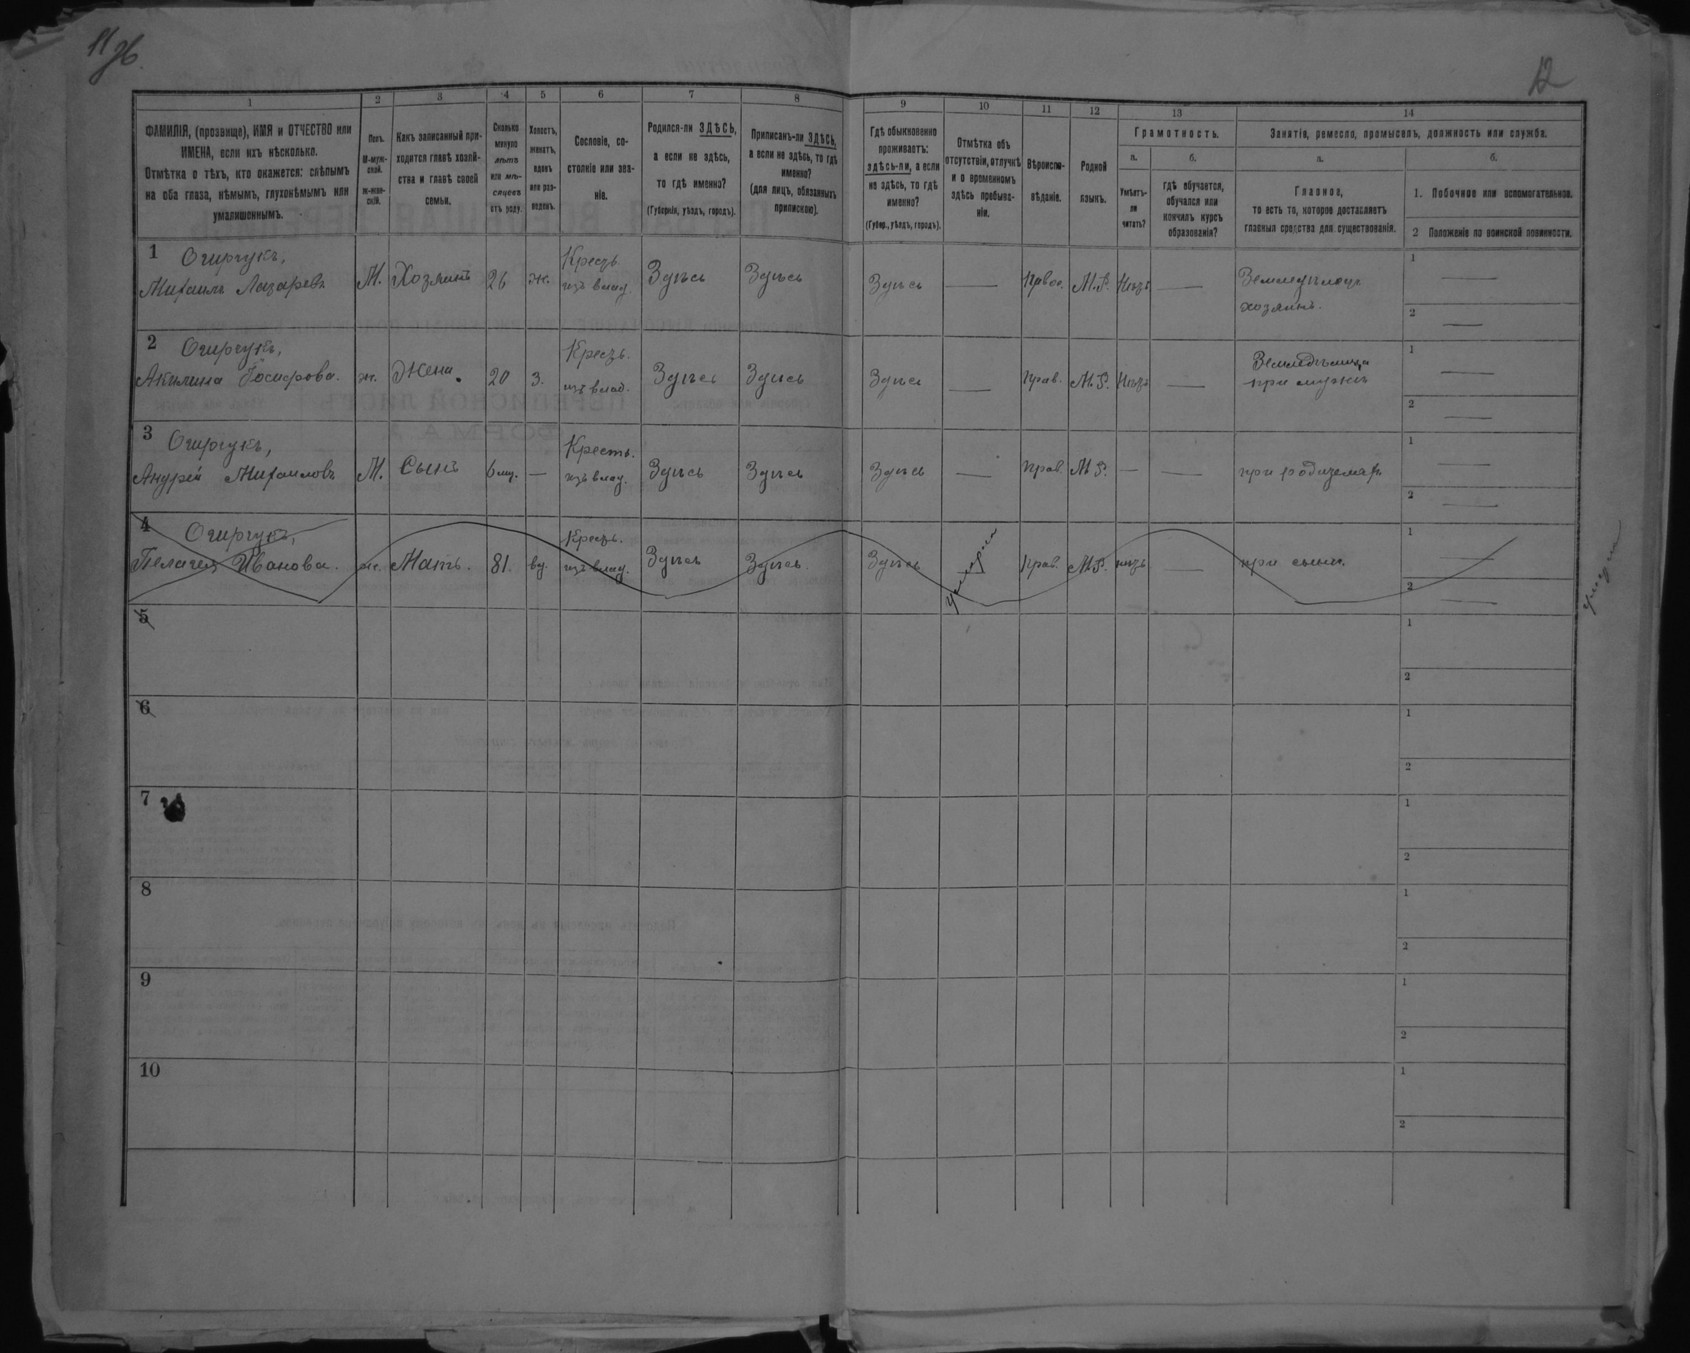 11 об.
12
1 2 3 4 5 6 7 8 9 10 11 12 13 14
ФАМИЛІЯ, (прозвище), ИМЯ и ОТЧЕСТВО или
ИМЕНА, если ихъ нѣсколько.
Отмѣтка о тѣхъ, кто окажется: слѣпымъ
на оба глаза, нѣмымъ, глухонѣмымъ или
умалишеннымъ.
Полъ.
М-муж-
ской.
Ж-жен-
скій.
Какъ записанный при-
ходится главѣ хозяй-
ства и главѣ своей
семьи.
Сколько
минуло
лѣтъ
или мѣ-
сяцевъ
отъ роду.
Холостъ,
женатъ,
вдовъ
или раз-
веденъ.
Сословіе, со-
стояніе или зва-
ніе.
Родился-ли ЗДѢСЬ,
а если не здѣсь,
то гдѣ именно?
(Губернія, уѣздъ, городъ).
Приписанъ-ли ЗДѢСЬ,
а если не здѣсь, то гдѣ
именно?
(для лицъ, обязанныхъ
припискою).
Гдѣ обыкновенно
проживаетъ:
здѣсь-ли, а если
не здѣсь, то гдѣ
именно?
(Губер., уѣздъ, городъ).
Отмѣтка объ
отсутствіи, отлучкѣ
и о временномъ
здѣсь пребыва-
ніи.
Вѣроиспо-
вѣданіе.
Родной
языкъ.
Грамотность.
а.
Умѣетъ-
ли
читать?
б.
гдѣ обучается,
обучался или
кончилъ курсъ
образованія?
Занятіе, ремесло, промыселъ, должность или служба.
а.
Главное,
то есть то, которое доставляетъ
главныя средства для существованія.
б.
1. Побочное или вспомогательное.
2 Положеніе по воинской повинности.
1 Очиргукъ,
Михаилъ Лазаревъ М. Хозяинъ 26 ж. Крест.
изъ влад. Здѣсь Здѣсь Здѣсь — Прав. М.Р. Нѣтъ — Земледѣлецъ
хозяинъ. 1 —
2 —
2 Очиргукъ,
Акилина Іосифова. ж. Жена. 20 з. Крест.
изъ влад. Здѣсь Здѣсь Здѣсь — Прав. М.Р. Нѣтъ — Земледѣлица
при мужѣ 1 —
2 —
3 Очиргукъ,
Андрей Михаиловъ М. Сынъ 6 мц. — Кресть.
изъ влад. Здѣсь Здѣсь Здѣсь — Прав. М.Р. — — при родителяхъ 1 —
2 —
4 Очиргукъ,
Пелагея Иванова. ж. Мать. 81. вд. Крест.
изъ влад. Здѣсь Здѣсь. Здѣсь умерла Прав. М.Р. нѣтъ — при сынѣ. 1 —
2 —
умерла
5 1
2
6 1
2
7 1
2
8 1
2
9 1
2
10 1
2